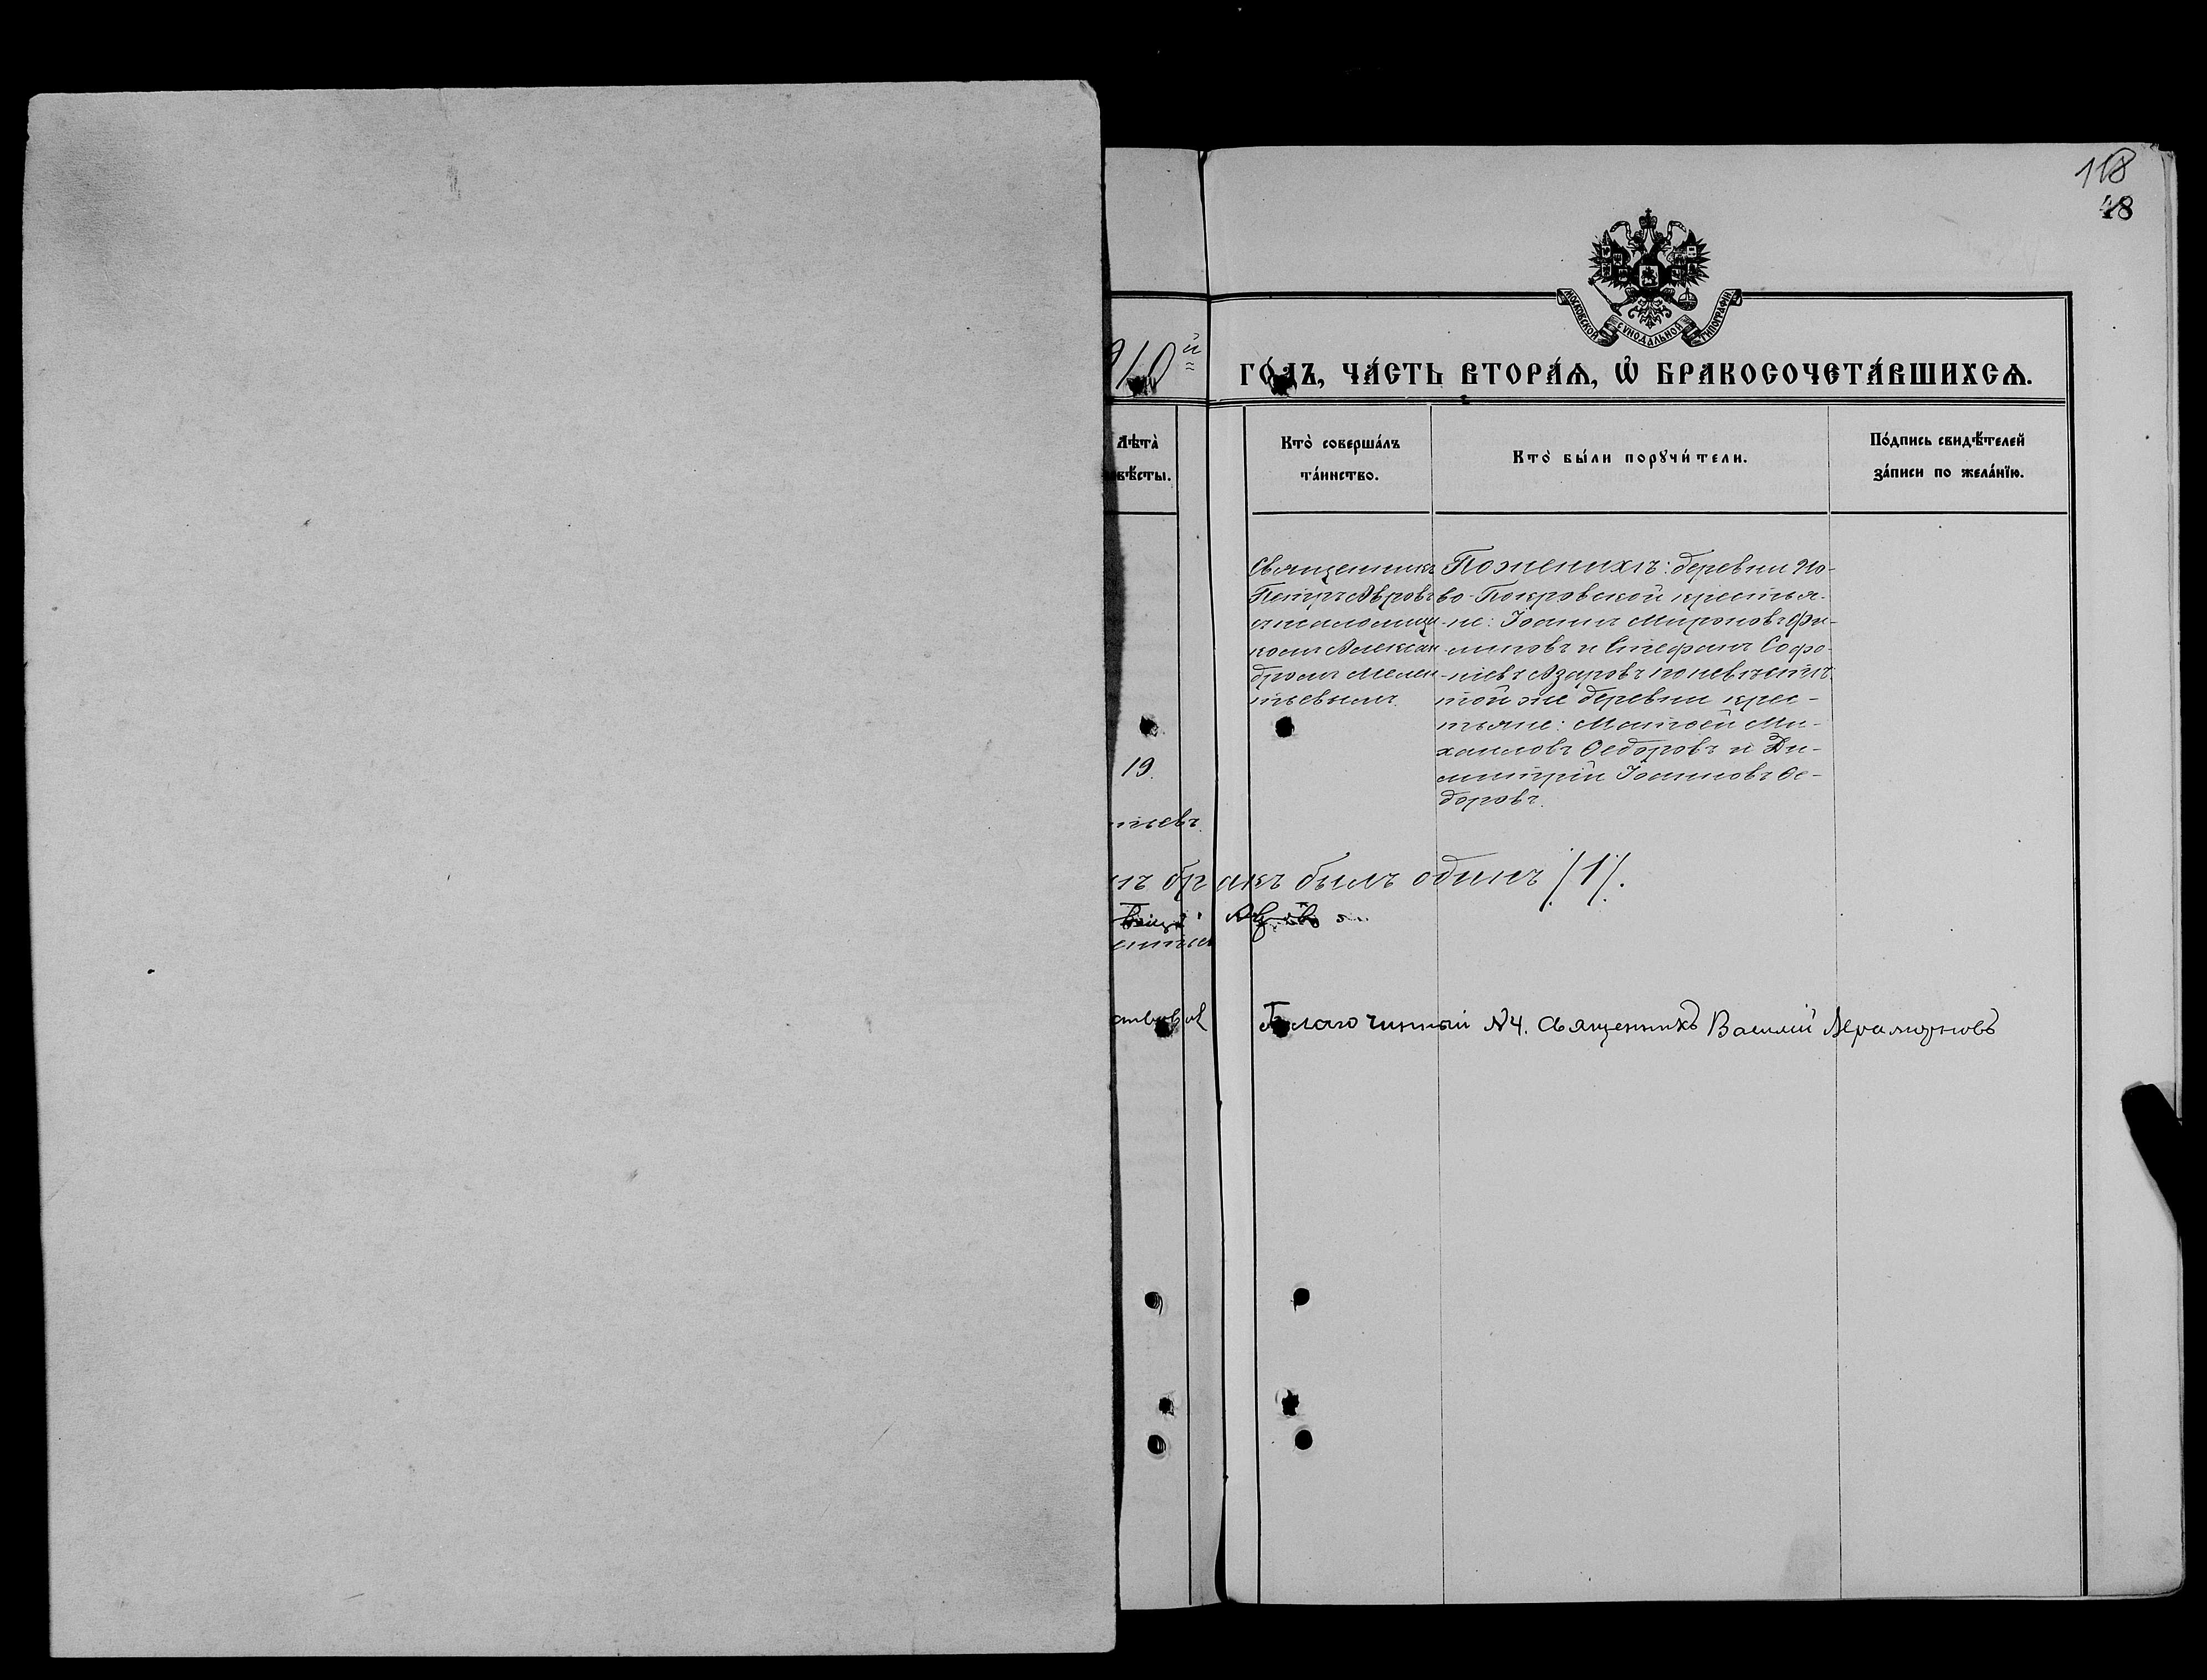 118
48
МОСКОВСКОЙ СѴНОДАЛЬНОЙ ТИПОГРАФІИ
910й
ГО́ДЪ, ЧА́СТЬ ВТОРА́Ѧ, Ѡ҆ БРАКОСОЧЕТА́ВШИХСѦ.
Лѣта̀
вѣ́сты.
Кто̀ соверша́лъ
та́инство.
Кто̀ бы́ли порꙋчи́тели.
По́дпись свидѣ́телей
за́писи по жела́нїю.
19.
тьевъ.
Священникъ
Петръ Авровъ
съ псаломщи
комъ Алексан
дромъ Мелен
тьевымъ.
По женихѣ: деревни Но-
во-Покровской крестья-
-не: Іоаннъ Мироновъ Фи-
-липовъ и Стефанъ Софо-
-ніевъ Азаровъ по невѣстѣ
той же деревни крес-
тьяне: Матѳей Ми-
хаиловъ Ѳедоровъ и Ди-
митрій Іоанновъ Ѳе-
доровъ.
бракъ былъ одинъ /1/.
Благочинный №4. Священникъ Василій